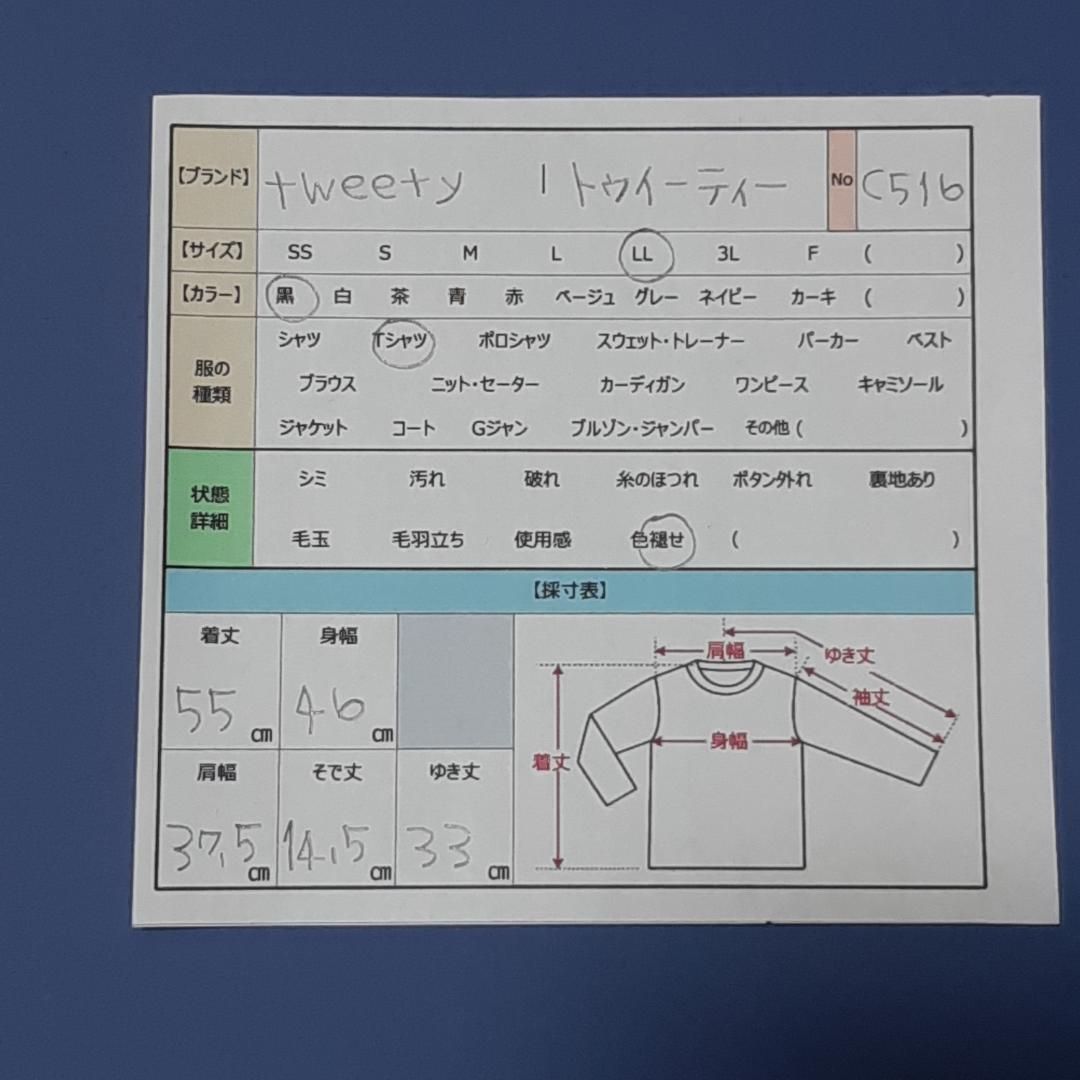 【ブランド】 tweety | トゥイーティー No C516
【サイズ】 SS S M L LL 3L F ( )
【カラー】 黒 白 茶 青 赤 ベージュ グレー ネイビー カーキ ( )
服の種類
シャツ Tシャツ ポロシャツ スウェット・トレーナー パーカー ベスト
ブラウス ニット・セーター カーディガン ワンピース キャミソール
ジャケット コート Gジャン ブルゾン・ジャンパー その他 ( )
状態詳細
シミ 汚れ 破れ 糸のほつれ ボタン外れ 裏地あり
毛玉 毛羽立ち 使用感 色褪せ ( )
【採寸表】
着丈 身幅
55 cm 46 cm
肩幅 そで丈 ゆき丈
37.5 cm 14.5 cm 33 cm
肩幅 ゆき丈
袖丈
身幅
着丈